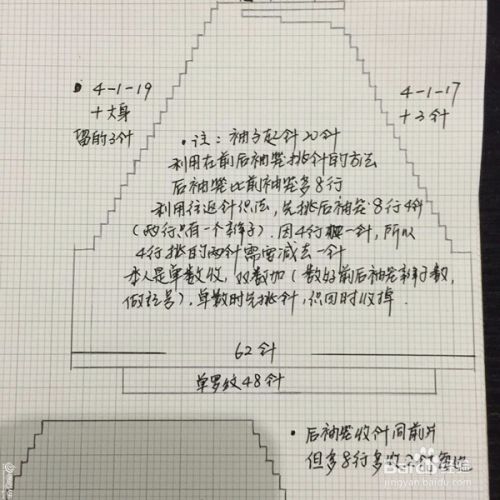 4-1-19
+大身
留的3针
4-1-17
+3针
·注：袖子起针20针
利用在前后袖笼挑针的方法
后袖笼比前袖笼多8行
利用往返针织法，先挑后袖笼8行4针
（两行只有一个辫子）.因4行一针，所以
4行挑的两针需要减去一针
本人是单数收，双数加（数好前后袖笼辫子数，
做记号），单数时先挑针，织回时收掉.
62针
单罗纹48针
·后袖笼收针同前片
但多8行多收2针每边
Baidu经验
jingyan.baidu.com